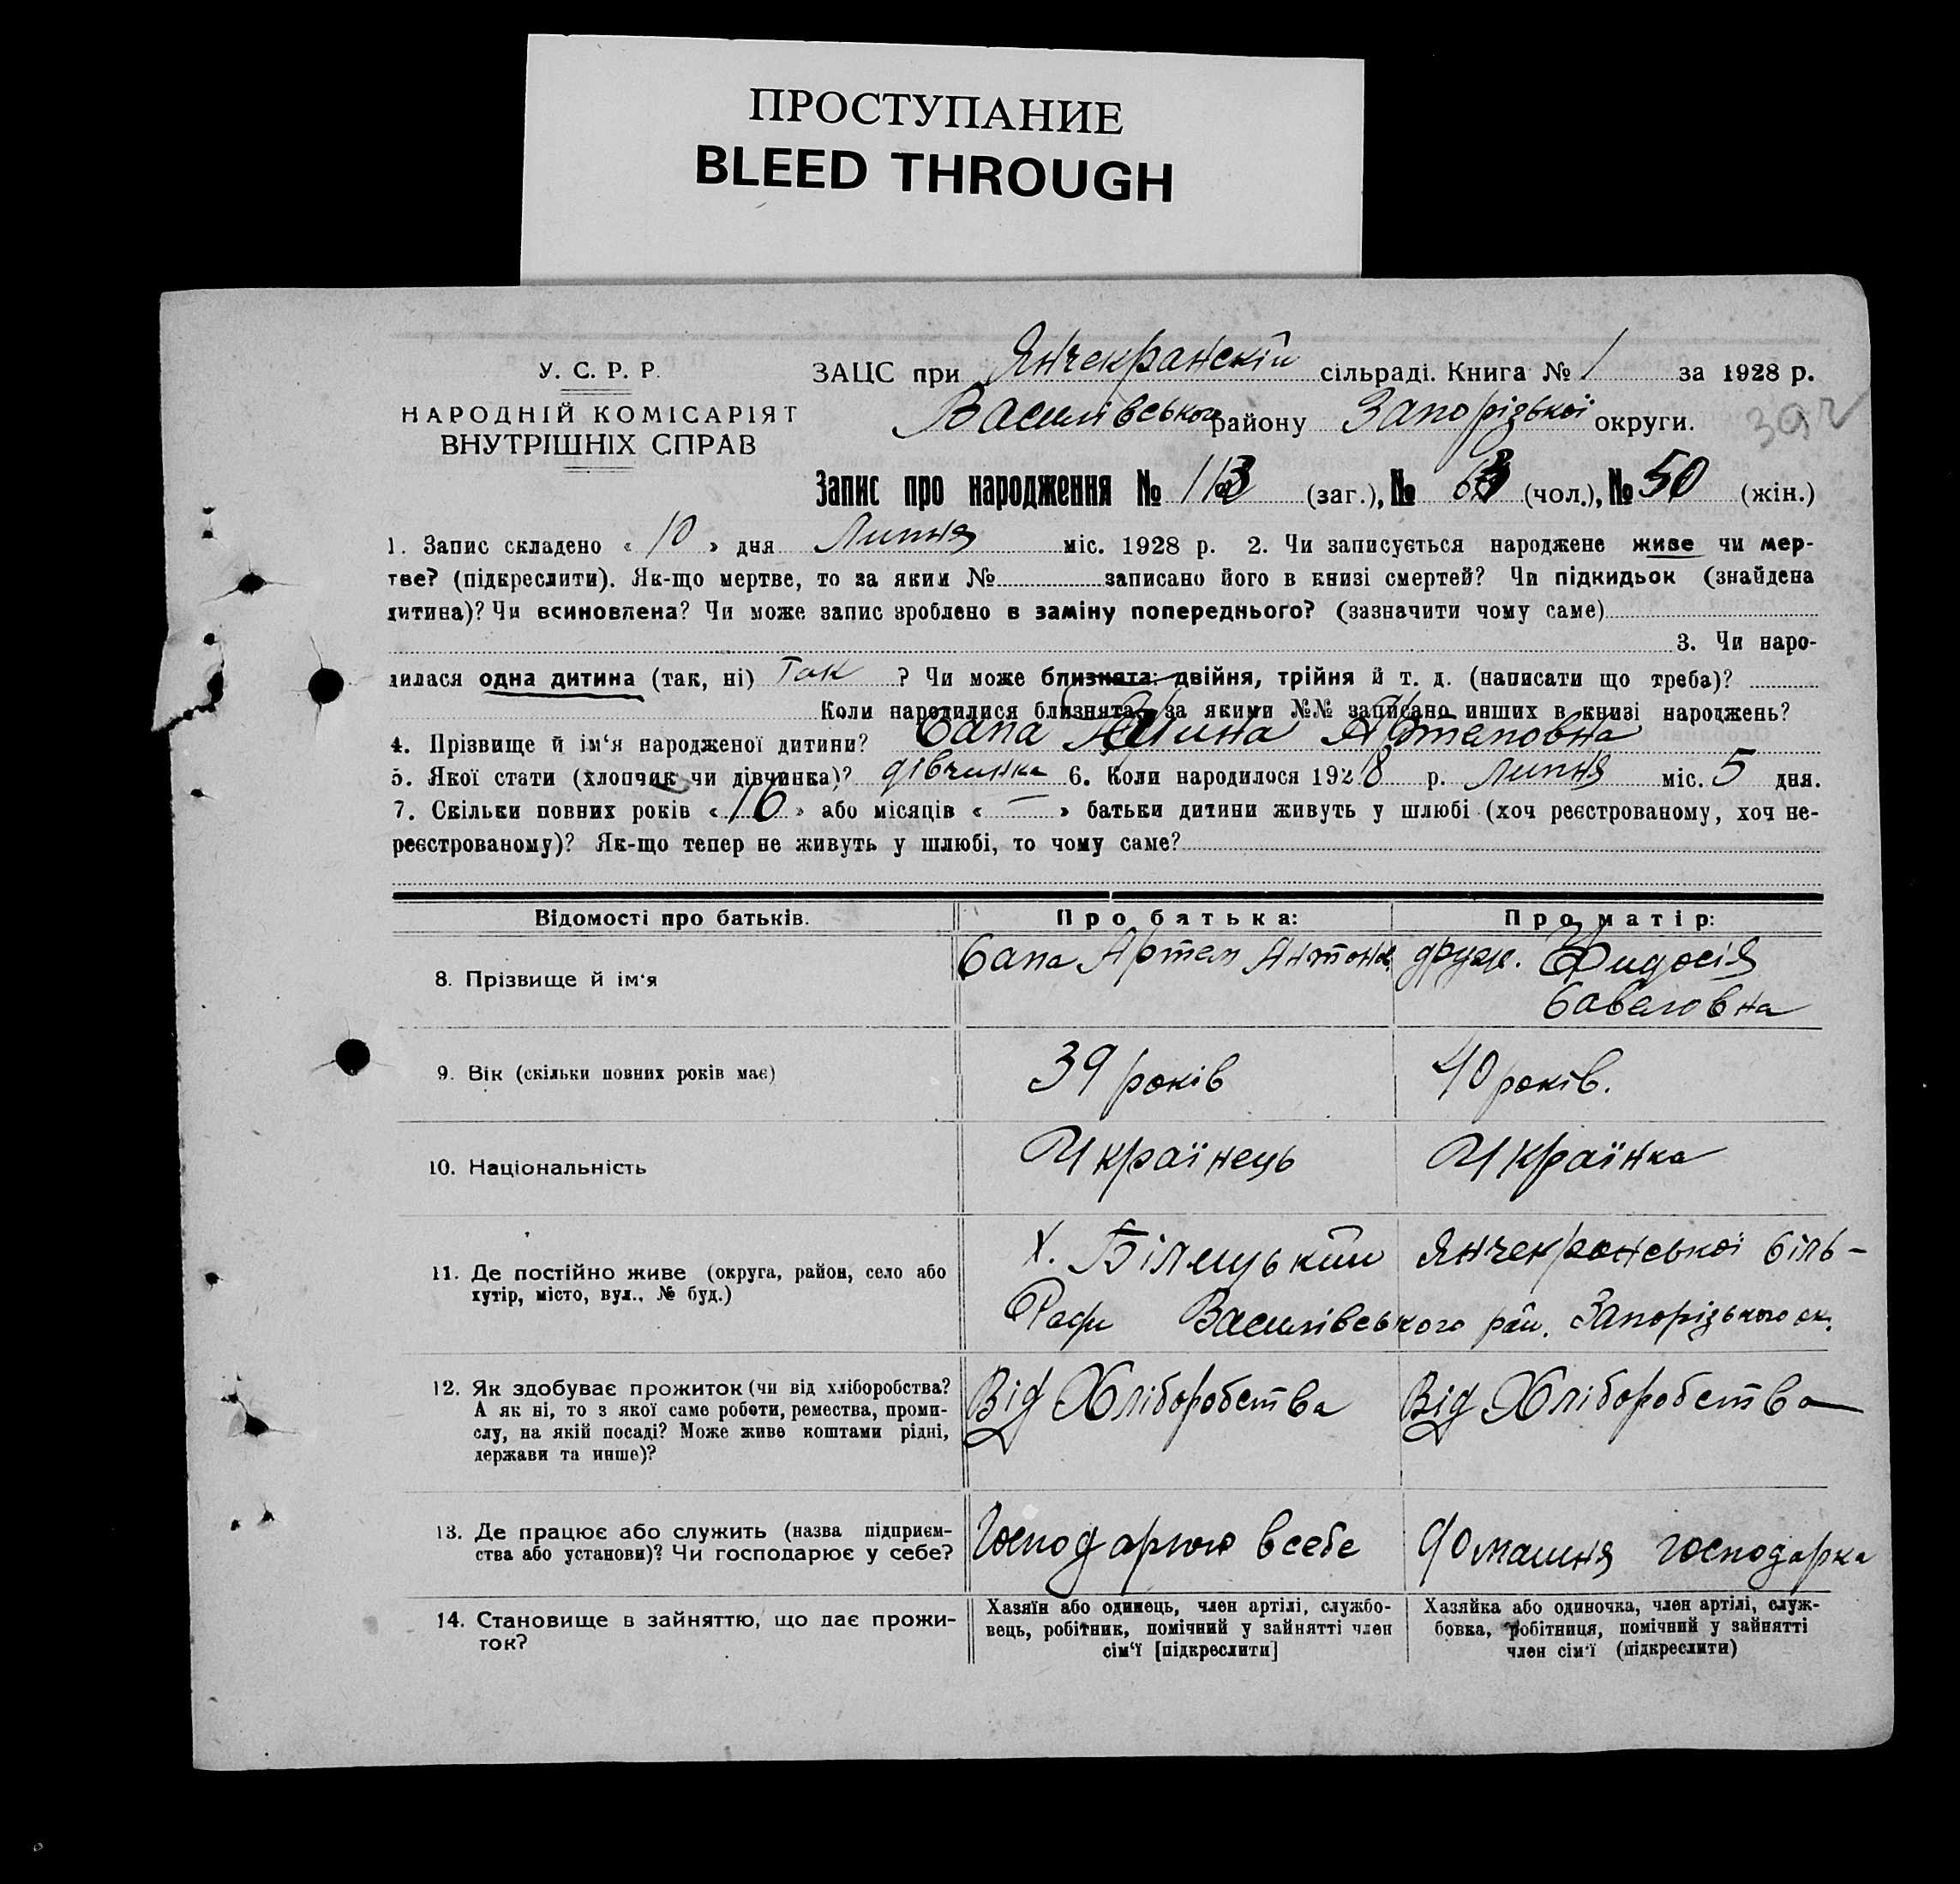 ПРОСТУПАНИЕ
BLEED THROUGH
У. С. Р. Р.
НАРОДНІЙ КОМІСАРІЯТ
ВНУТРІШНІХ СПРАВ
ЗАЦС при Янчекранскій сільраді. Книга № 1 за 1928 р.
Василівського району Запорізької округи.
Запис про народження № 113 (заг.), № 63 (чол.), № 50 (жін.)
1. Запис складено « 10 » дня Липня міс. 1928 р. 2. Чи записується народжене живе чи мер-
тве? (підкреслити). Як-що мертве, то за яким № записано його в книзі смертей? Чи підкидьок (знайдена
дитина)? Чи всиновлена? Чи може запис зроблено в заміну попереднього? (зазначити чому саме)
3. Чи наро-
дилася одна дитина (так, ні) Так ? Чи може близнята: двійня, трійня й т. д. (написати що треба)?
Коли народилися близнята, за якими №№ записано инших в книзі народжень?
4. Прізвище й ім'я народженої дитини? Сапа Артемовна
5. Якої стати (хлопчик чи дівчинка)? дівчинка 6. Коли народилося 1928 р. Липня міс. 5 дня.
7. Скільки повних років « 16 » або місяців « — » батьки дитини живуть у шлюбі (хоч реєстрованому, хоч не-
реєстрованому)? Як-що тепер не живуть у шлюбі, то чому саме?
Відомості про батьків. Про батька: Про матір:
8. Прізвище й ім'я Сапа Артем Антонов друж. Фидосія
Савеловна
9. Вік (скільки повних років має) 39 років 40 років.
10. Національність Українець Українка
11. Де постійно живе (округа, район, село або
хутір, місто, вул., № буд.)
х. Білицький Янчекранської Сіль-
Ради Василівського рай. Запорізького ок.
12. Як здобуває прожиток (чи від хліборобства?
А як ні, то з якої саме роботи, ремества, проми-
слу, на якій посаді? Може живе коштами рідні,
держави та инше)?
Від Хліборобства Від Хліборобства
13. Де працює або служить (назва підприєм-
ства або установи)? Чи господарює у себе?
Господарює всебе Домашня господарка
14. Становище в зайняттю, що дає прожи-
ток?
Хазяїн або одинець, член артілі, службо-
вець, робітник, помічний у зайнятті член
сім'ї [підкреслити]
Хазяйка або одиночка, член артілі, служ-
бовка, робітниця, помічний у зайнятті
член сім'ї (підкреслити)